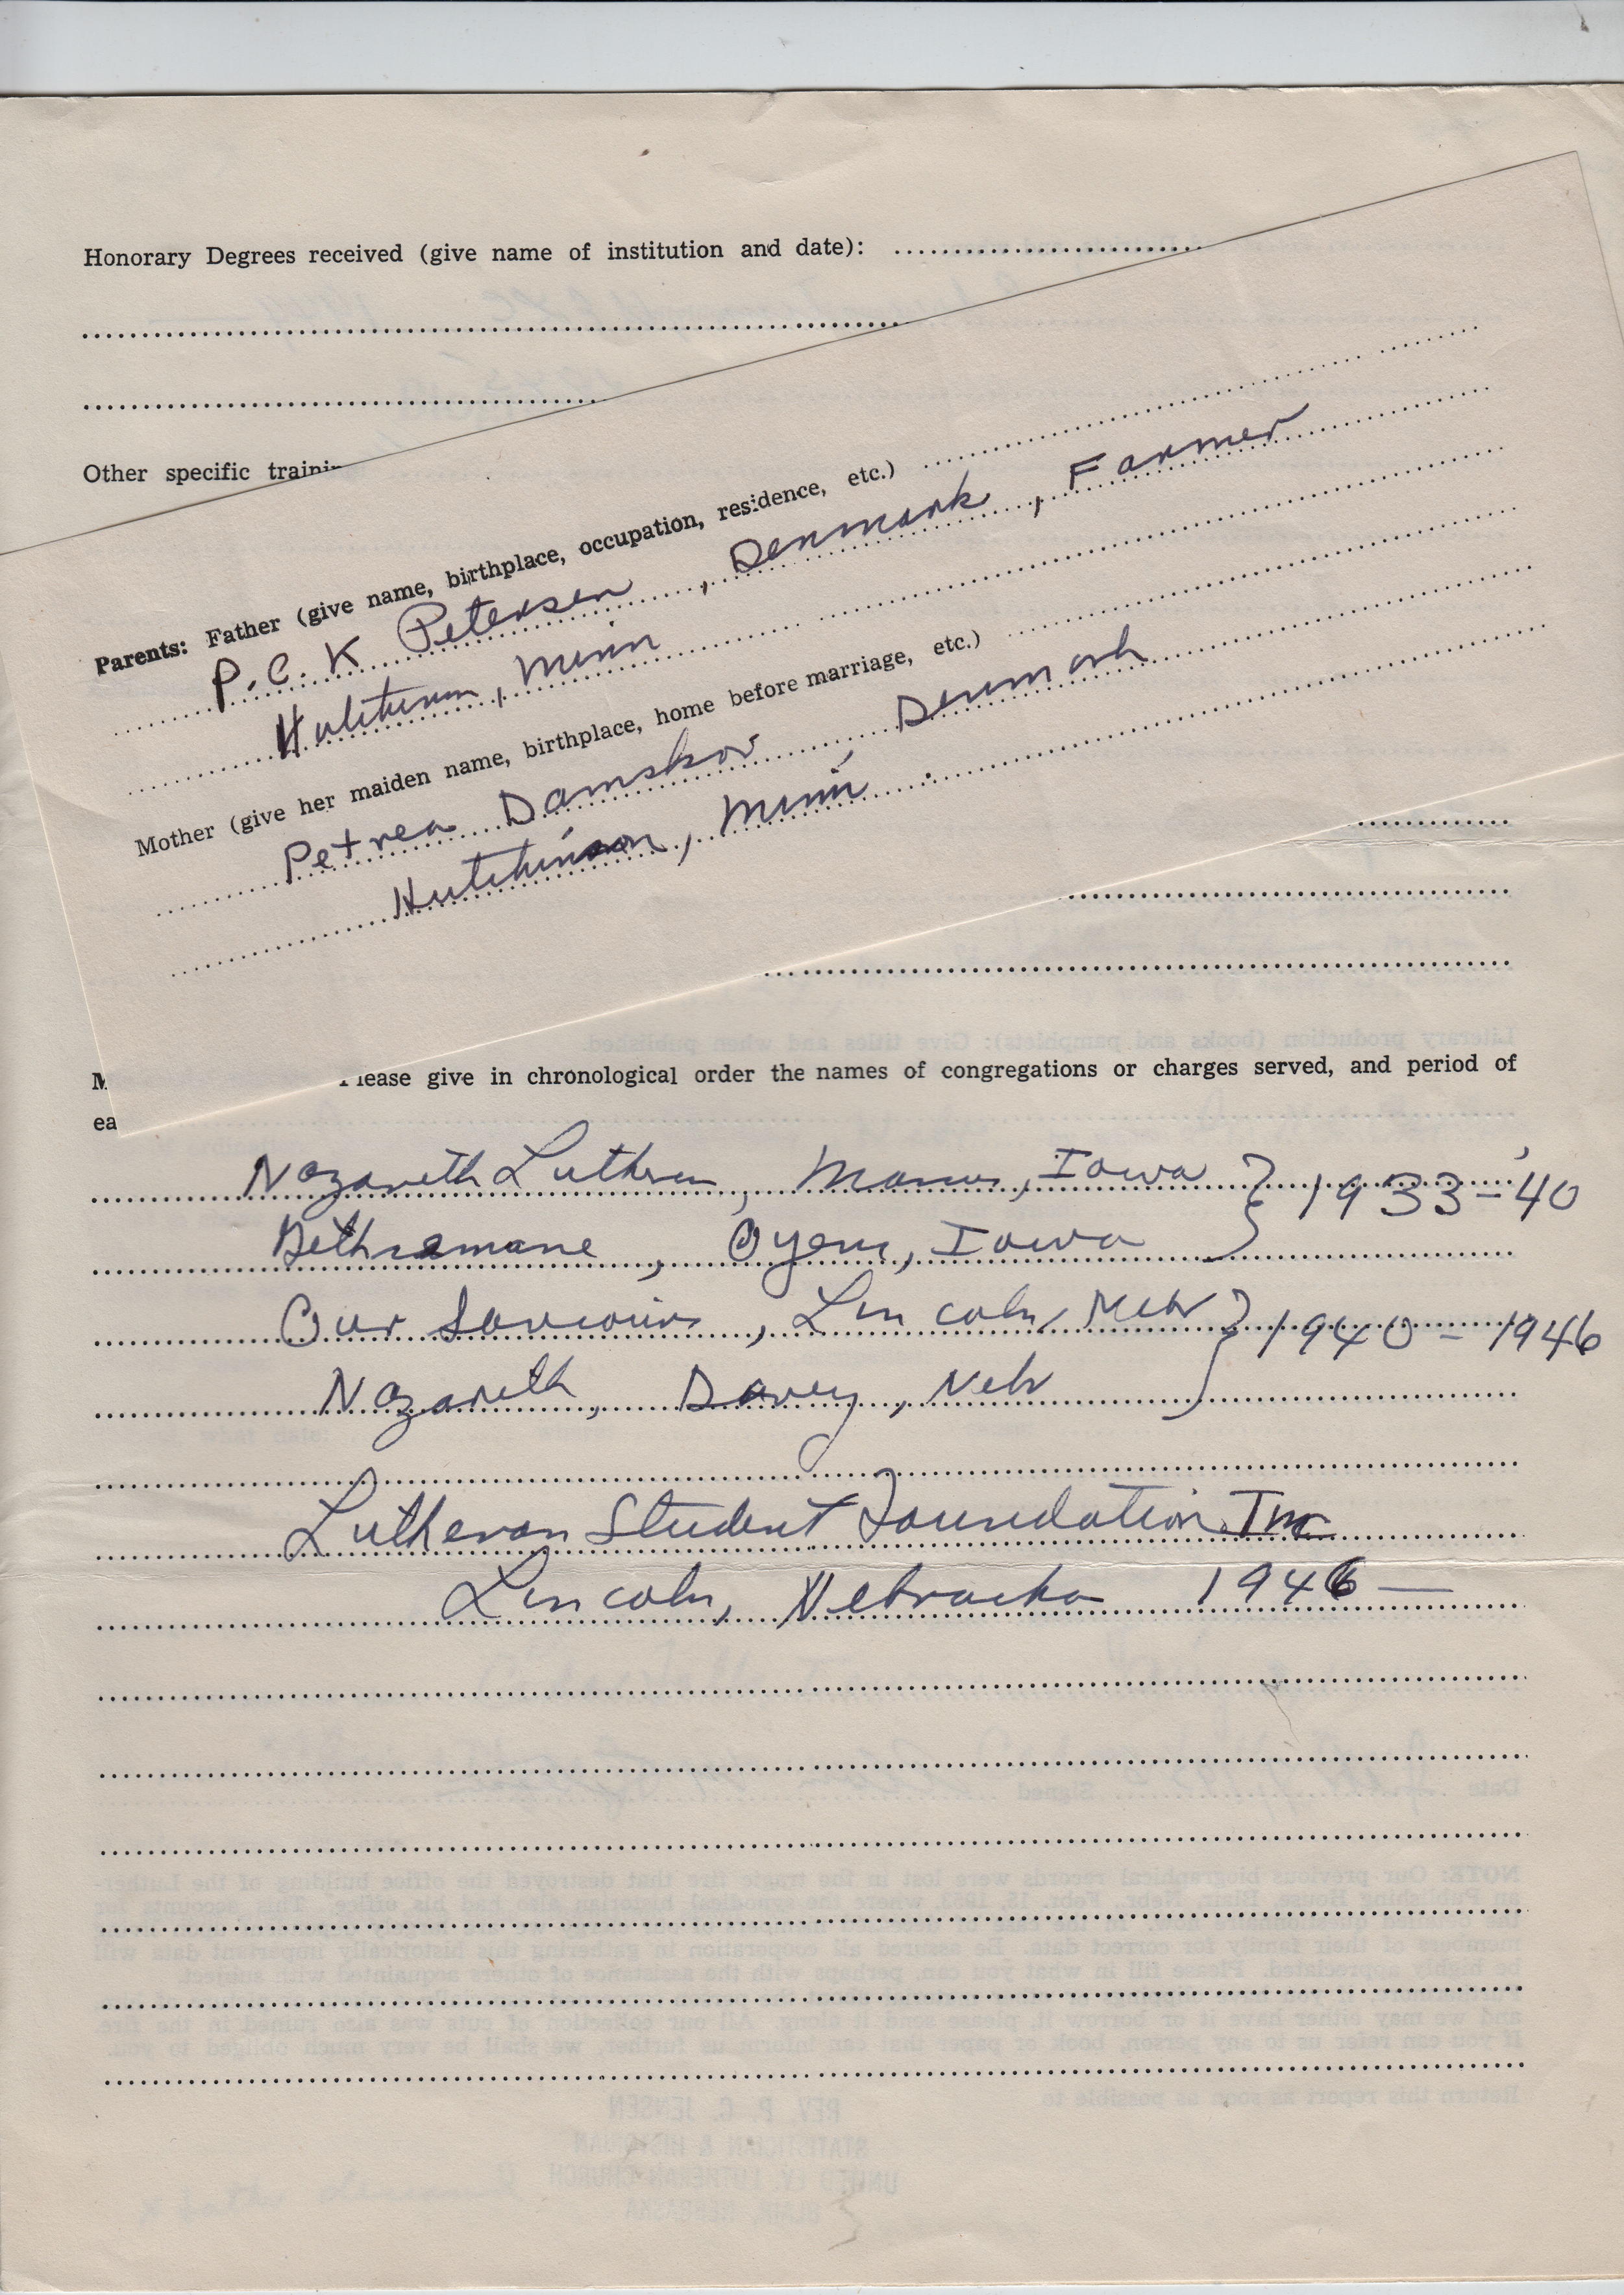 Honorary Degrees received (give name of institution and date):
Other specific trainin
Parents: Father (give name, birthplace, occupation, residence, etc.)
P. C. K Petersen, Denmark, Farmer
Minn
Mother (give her maiden name, birthplace, home before marriage, etc.)
Petrea Damskov, Denmark
Hutchinson, Minn
M lease give in chronological order the names of congregations or charges served, and period of
ea
Nazareth Lutheran, Iowa } 1933-'40
Gethsemane, Iowa
Our Saviours, Lincoln, Nebr } 1940 - 1946
Nazareth, Davey, Nebr
Lutheran Student Foundation Inc
Lincoln, Nebraska 1946 —